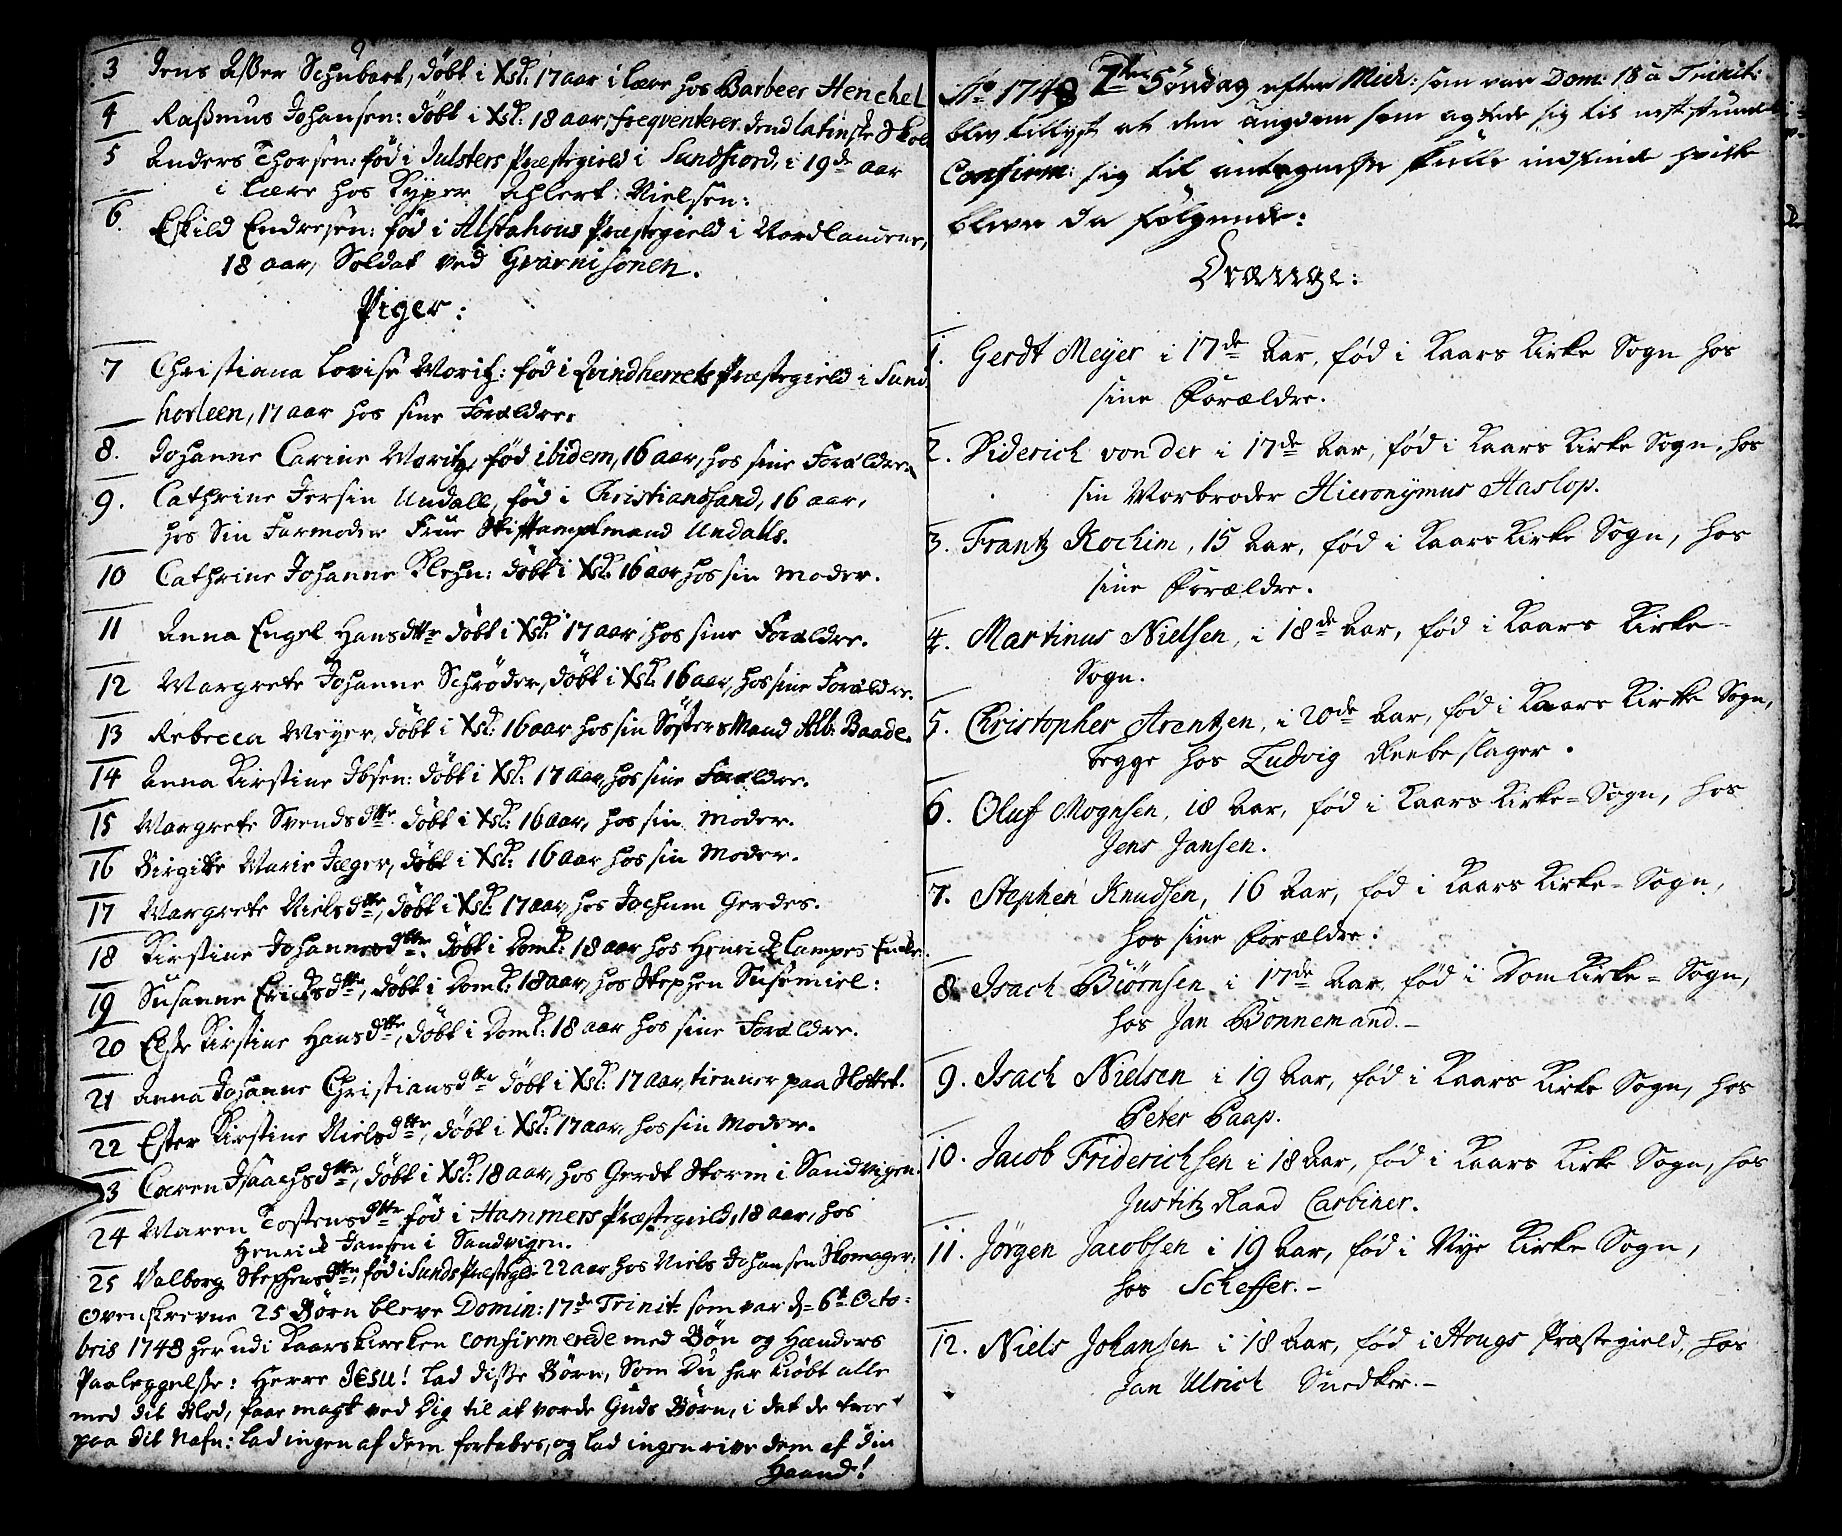 3 Jens Asser Schubart, döbt i Xstk: 17 aar i lære hos Barbeer Henchel
4 Rasmus Johansen: döbt i Xstk: 18 aar, freqventerer dend latinske Skole
5 Anders Thorsen: föd i Julsters Præstegield i Sundfiord, i 19de aar
i lære hos Kyper Ahlert Nielsen:
6. Eskild Endresen: föd i Alstahous Præstegield i Nordlandene,
18 aar, Soldat ved Gvarnisonen.
Piger:
7 Christiana Lovise Moritz: föd i Qvindherrets Præstegield i Sund
horleen, 17 aar hos sine Forældre.
8. Johanne Carine Moritz, föd ibidem, 16 aar, hos sine Forældre.
9. Cathrine Jersin Undall, föd i Christiansand, 16 aar,
hos sin Farmoder Frue Stiftamptmand Undalls.
10 Cathrine Johanne Klehn: döbt i Xstk: 16 aar hos sin Moder.
11 Anna Engel Hansdttr döbt i Xstk: 17 aar hos sine Forældre.
12 Margrete Johanne Schröder, döbt i Xstk: 16 aar, hos sine Forældre.
13 Rebecca Meyer, döbt i Xstk: 16 aar hos sin Søsters Mand Alb: Baade.
14 Anna Kirstine Ibsen: döbt i Xstk: 17 Aar, hos sine Forældre.
15 Margrete Svendsdttr. döbt i Xstk: 16 aar, hos sin Moder.
16 Birgitte Marie Jæger, döbt i Xstk: 16 aar hos sin Moder.
17 Margrete Nielsdttr, döbt i Xstk: 17 aar, hos Jochum Gerdes.
18 Kirstine Johannesdttr: döbt i Domk: 18 aar hos Henrick Lampes Enke.
19 Susanne Ericksdttr, döbt i Domk: 18 aar, hos Stephen Susemiel:
20 Else Kirstine Hansdttr, döbt i Domk: 18 aar hos sine Forældre.
21 Anna Johanne Christiansdttr döbt i Xstk: 17 aar, tienner paa Slottet.
22 Ester Kirstine Nielsdttr, döbt i Xstk: 17 aar, hos sin Moder.
23 Caren Isaachsdttr, döbt i Xstk: 18 aar, hos Gerdt Storm i Sandvigen.
24 Maren Tostensdttr föd i Hammers Præstegield, 18 aar, hos
Henrick Janson i Sandvigen.
25 Valborg Stephensdttr, föd i Sunds Præstegield 22 aar hos Niels Johansen Skomager,
Ovenskrevne 25 Börn bleve Domin: 17de Trinit: som var d= 6t Octo-
bris 1748 her udi Kaarskircken confirmerede med Bön og Hænders
Paaleggelse: Herre Jesu! lad disse Börn, som Du har kiöbt alle
med dit Blod, faae magt ved Dig til at vorde Guds Börn, i det de troe
paa dit Nafn: lad ingen af dem fortabes, og lad ingen rive dem af din
Haand!
Ao 1748 7de Söndag efter Mich: som var Dom: 18 a Trinit:
blev tillyst at den ungdom som agtede sig til næstkommende
Confirm: sig til antagelse skulle indfinde hvilke
bleve da følgende:
Drænge:
1. Gerdt Meyer i 17de Aar, föd i Kaars Kirke Sogn hos
sine Forældre.
2. Diderich von der i 17de Aar, föd i Kaars Kirke Sogn, hos
sin Morbroder Hieronÿmus Haslop.
3. Frantz Kochim, 15 Aar, föd i Kaars Kirke Sogn, hos
sine Forældre.
4. Martinus Nielsen, i 18de Aar, föd i Kaars Kirke-
Sogn.
5. Christopher Arentzen, i 20de Aar, föd i Kaars Kirke Sogn,
begge hos Ludvig Reebeslager.
6. Oluf Mognsen, 18 Aar, föd i Kaars Kirke=Sogn, hos
Jens Jansen.
7. Stephen Knudsen, 16 Aar, föd i Kaars Kirke=Sogn,
hos sine Forældre.
8. Isach Biörnsen i 17de Aar, föd i Dom Kirke=Sogn,
hos Jan Bonnemand.-
9. Isach Nielsen i 19 Aar, föd i Kaars Kirke Sogn, hos
Peter Paap.
10. Jacob Friderichsen i 18 Aar, föd i Kaars Kirke Sogn, hos
Justitz Raad Carbiner.
11. Jörgen Jacobsen i 19 Aar, föd i Nye Kirke Sogn,
hos Scheffer.-
12. Niels Johansen i 18 Aar, föd i Hougs Præstegield, hos
Jan Ulrich Snedker.-